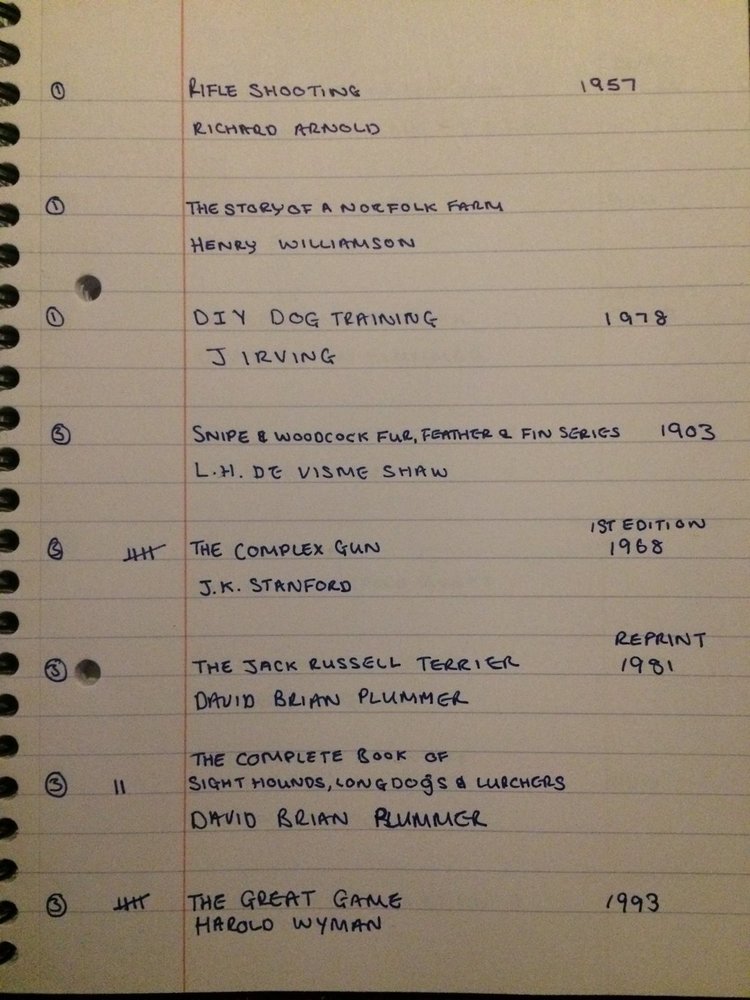 ① RIFLE SHOOTING 1957
RICHARD ARNOLD
① THE STORY OF A NORFOLK FARM
HENRY WILLIAMSON
① DIY DOG TRAINING 1978
J IRVING
③ SNIPE & WOODCOCK FUR, FEATHER & FIN SERIES 1903
L.H. DE VISME SHAW
1ST EDITION
③ THE COMPLEX GUN 1968
J.K. STANFORD
REPRINT
③ THE JACK RUSSELL TERRIER 1981
DAVID BRIAN PLUMMER
THE COMPLETE BOOK OF
③ II SIGHT HOUNDS, LONGDOGS & LURCHERS
DAVID BRIAN PLUMMER
③ THE GREAT GAME 1993
HAROLD WYMAN